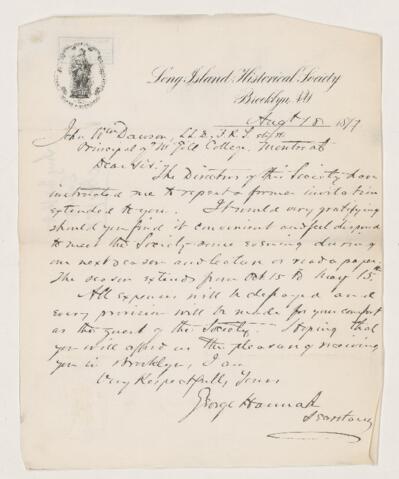 Long Island Historical Society
Brooklyn, NY
Augt 18 1877
John Wm Dawson, LL.D., F.R.S. &c
Principal of McGill College, Montreal
Dear Sir:
The Directors of this Society have
instructed me to repeat a former invitation
extended to you. It would very gratifying
should you find it convenient and feel disposed
to meet the Society some evening during
our next season and lecture or read a paper.
The season extends from Oct 15 to May 15th.
All expenses will be defrayed and
every provision will be made for your comfort
as the guest of the Society. Hoping that
you will afford us the pleasure of receiving
you in Brooklyn, I am
Very Respectfully, Yours
George Hannah
Secretary